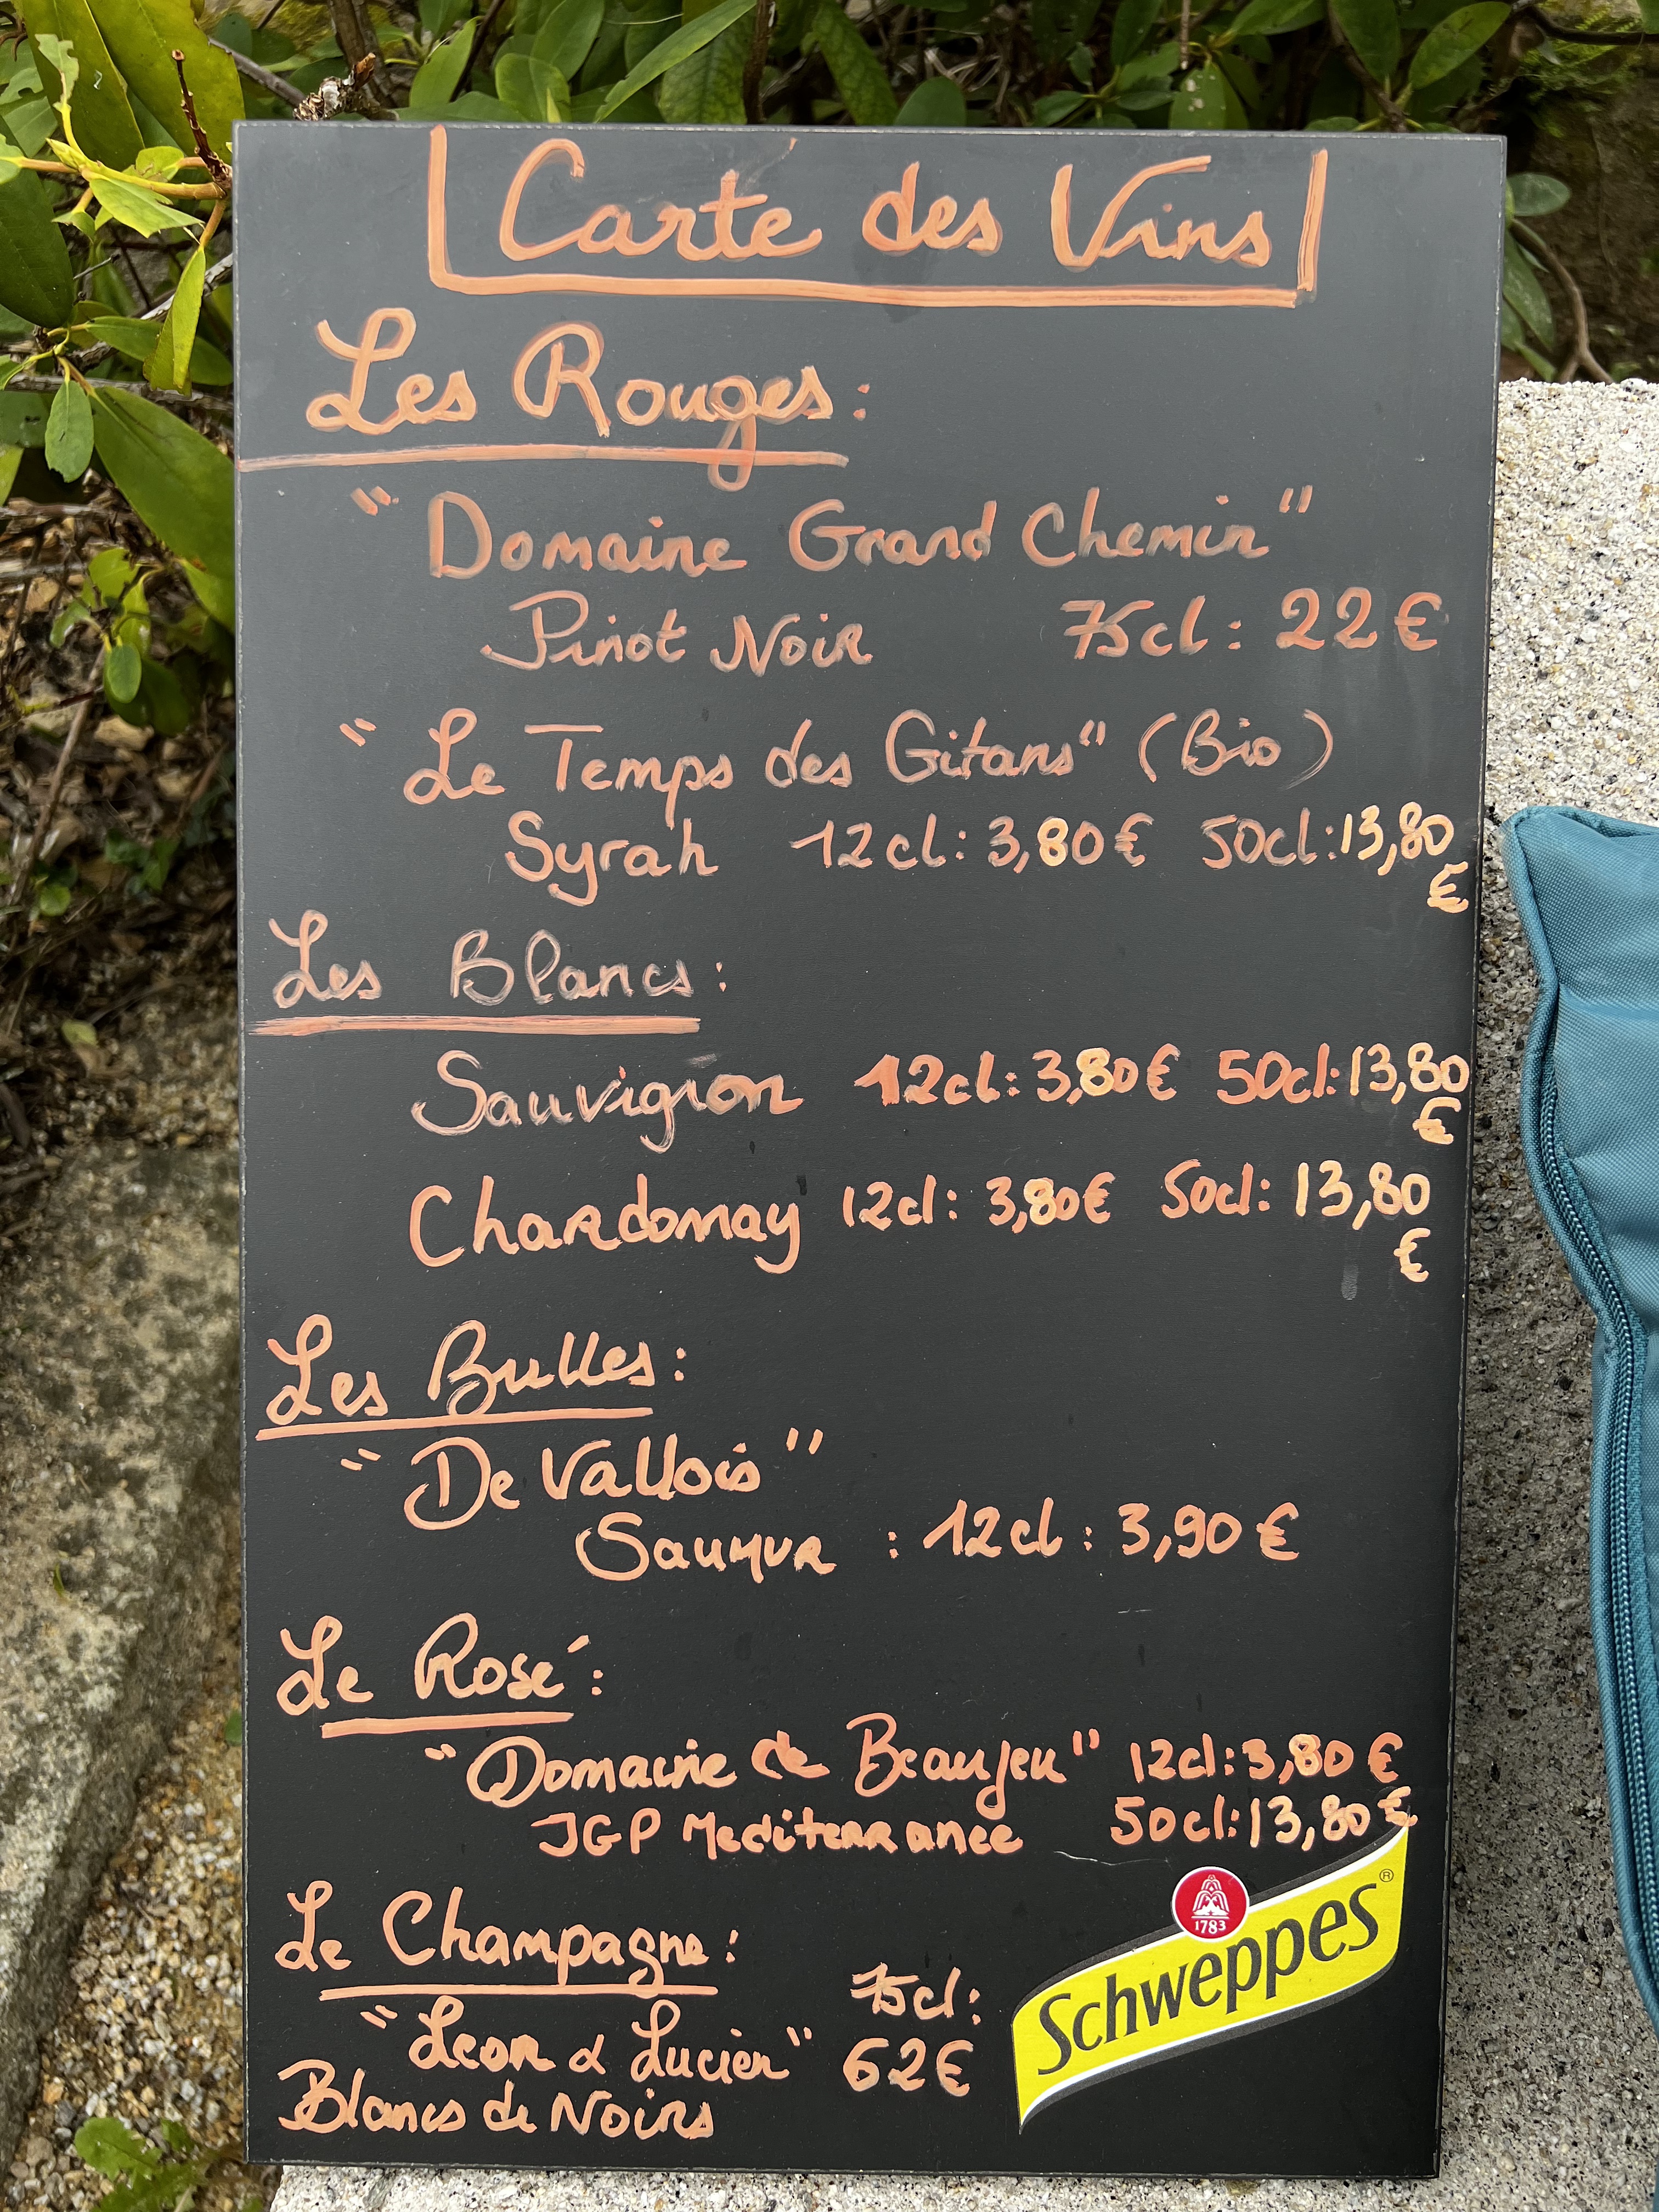 Carte des Vins
Les Rouges:
"Domaine Grand Chemin"
Pinot Noir 75cl: 22€
"Le Temps des Gitans" (Bio)
Syrah 12cl: 3,80€ 50cl: 13,80
€
Les Blancs:
Sauvignon 12cl: 3,80€ 50cl: 13,80
€
Chardonnay 12cl: 3,80€ 50cl: 13,80
€
Les Bulles:
"De Vallois"
Saumur : 12cl: 3,90€
Le Rosé:
"Domaine de Beaujeu" 12cl: 3,80€
IGP Mediterranee 50cl: 13,80€
Le Champagne:
75cl:
"Leon & Lucien" 62€
Blancs de Noirs
1783
Schweppes®